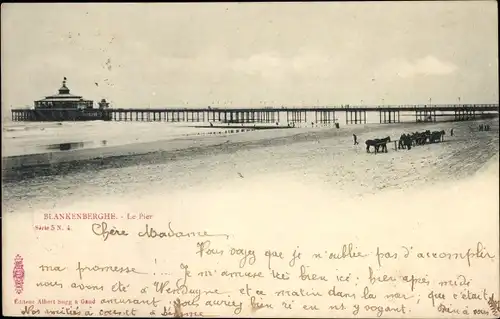 BLANKENBERGHE. - Le Pier
Série 5 N. 4.
Chère Madame,
Vous voyez que je n'oublie pas d'accomplir
ma promesse !... Je m'amuse très bien ici; hier après midi
nous avons été à Wenduyne et ce matin dans la mer, que c'était
amusant, j'ai bien ri en m'y voyant. Bien à vous
Editeur Albert Sugg à Gand
Nos amitiés à